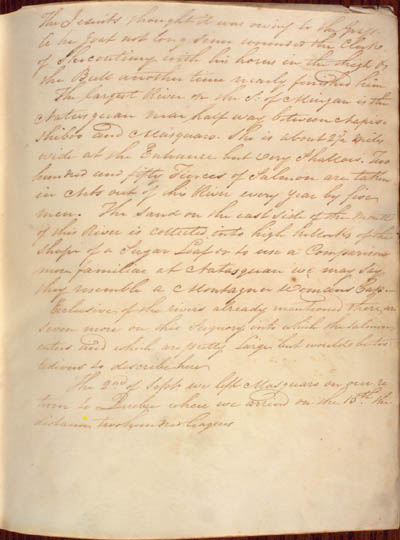 The Jesuits thought it was owing to the grass.
he goat not long since wounded the Clerk
of Itscoutimy with his horns in the thigh &
the Bull another time nearly finished him
The largest River on the S. of Mingan is the
Natasquan near half way between
and Masquaro. She is about 2½ Miles
wide at the Entrance but very Shallow. two
hundred and fifty Tierces of Salmon are taken
in Nets out of this River every Year by five
men. The Sand on the east Side of the mouth
of this River is collected into high hillocks of the
Shape of a Sugar Loaf or to use a Comparison
more familiar at Natasquan we may say
they resemble a Montagner Womans Cap.
Exclusive of the rivers already mentioned there are
Seven more on this Signory into which the salmon
enters and which are pretty large but would be too
tedious to describe here
The 2nd of Septr we left Masquaro on our re
turn to Quebec where we arrived on the 13th the
distance two hundred leagues